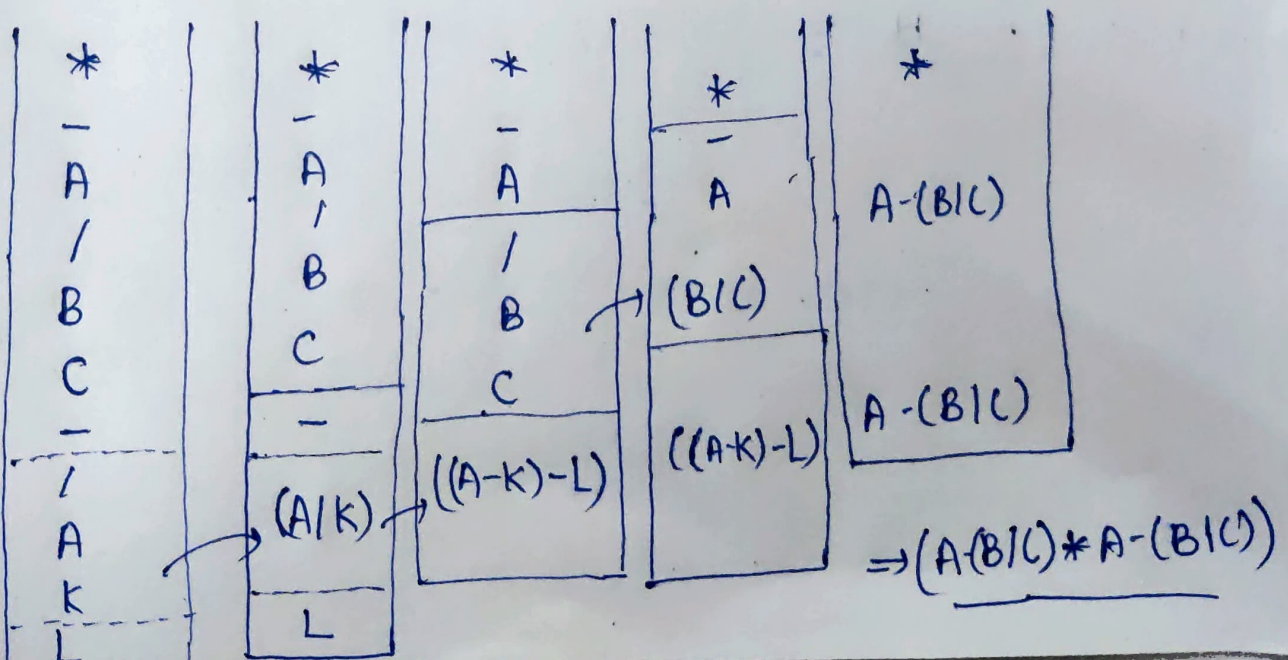 *
-
A
/
B
C
-
/
A
K
L
*
-
A
/
B
C
-
(A/K)
L
*
-
A
/
B
C
((A-K)-L)
*
-
A
(B/C)
((A-K)-L)
*
A-(B/C)
A-(B/C)
⇒(A-(B/C)*A-(B/C))